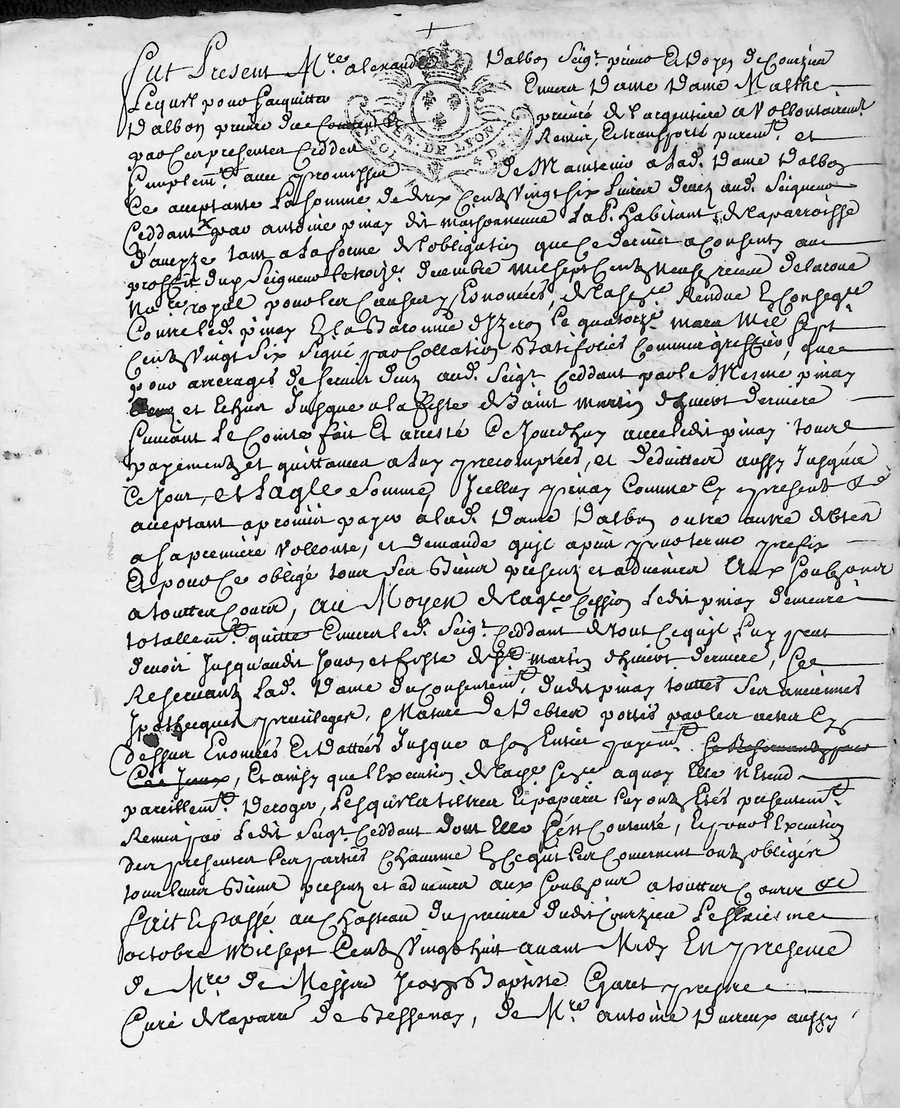 Fut Present Mre alexandre Dalbon Seigr prieur Et Doyen de Courzieu
Lequel pour Sacquitter Envers Dame Dame Marthe
Dalbon prieure du Couvent de prieuré de largentiere a Vollontairemt
par Ces presentes Ceddé Remis, Et transporté puremt et
Simplemt avec promesse de Maintenir a Lad. Dame Dalbon
Ce aceptante La Somme de deux Cents Vingt six Livres deues aud. Seigneur
Ceddant par antoine pinay dit maisonneuve Lab. habitant de la parroisse
d'aveyze tant a La forme de lobligation que Ce dernier a Consenty au
proffit dud Seigneur le troize decembre mil sept Cents neuf receue delaroue
Nore royal pour les Causes y Enoncées, de la sce Rendue En Conseqce
Contre led. pinay En la Baronnie dyzeron le quatorze mars Mil Sept
Cents Vingt Six Signé par Collation Batifolier Commis greffier, que
pour arrerages de servis deus aud. Seigr Ceddant par le Mesme pinay
et Echus Jusques a la feste de Saint Martin d'hivert derniere
Suivant Le Comte fait Et arresté Ce Jourdhuy avec ledit pinay toutte
payements et quittances a Luy precomptées, et deduittes aussy Jusques a
Ce Jour, et Laqlle Somme, Icelluy pinay Comme Cy present Et
aceptant a promis payer a lad. Dame Dalbon outre autre debtes
a Sa premiere Vollonté, et demande quil a pris pour terme prefix
Et pour Ce obligé tous Ses Biens presents et advenir aux Soubzons
a touttes Cours, au Moyen de laqle Cession Ledit pinay demeure
totallemt quitte Envers led. Seigr Ceddant de tout Ce quil Luy peut
devoir Jusquaudit Jour, et feste de St Martin d'hivert derniere, Se
Reservant Lad. Dame du Consentemt dudit pinay touttes Ses anciennes
Ipotheques, privileges, Nature de Debtes portés par les actes Cy
dessus Enoncés Et dattées Jusque a Son Entier payemt. Se Reservant pour
Ces Jeux, Et ainsy que lExecution de la dte sce a quoy Elle N'Entend
pareillemt Deroger, Lesquels tiltres Et papiers luy onts Etés presentemt
Remis par Ledit Seigr Ceddant dont Elle s'est Contenté, Et pour lExecution
des presentes Les parties Chacunne En Ce qui Les Concernent onts obligés
tous leurs Biens presents et advenir aux Soubz pour a touttes Cours Et
fait Et passé au Chasteau du prieuré dudit Courzieu Le
octobre Mil sept Cents Vingt huit avant Midy En presence
de Mre de Messire Jean Baptiste Charet prestre
Curé de la parre de Bessenay, de Mre antoine Ducreux aussy